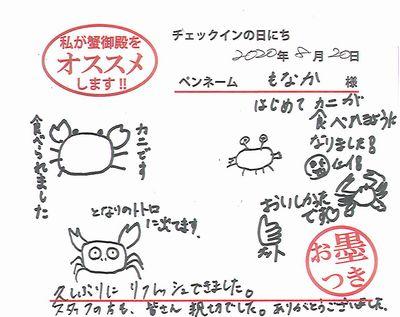 私が蟹御殿を
オススメ
します!!
チェックインの日にち
2020年8月20日
ペンネーム もなか 様
はじめて カニが
食べれるように
なりました!
おいしかった
です♡
カニです
食べられました
となりのトトロ
に出てます。
お墨
つき
久しぶりに リフレッシュできました。
スタッフの方も、皆さん 親切でした。ありがとうございました。